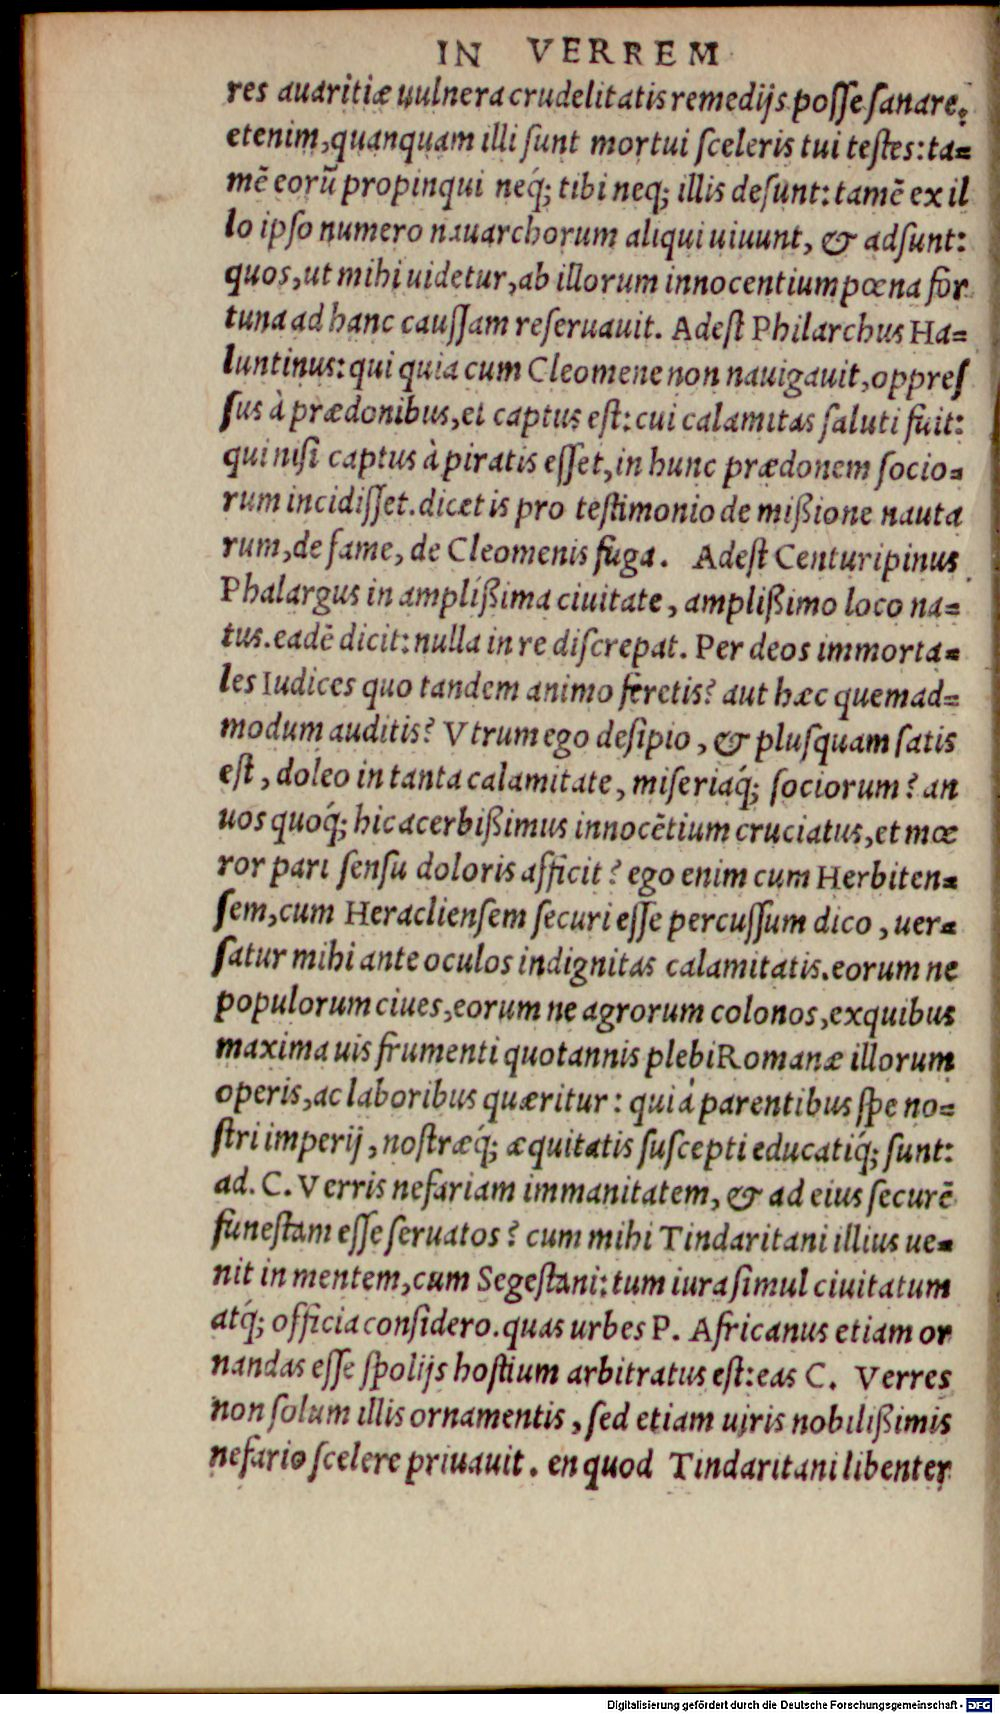 IN VERREM
res auaritiæ uulnera crudelitatis remedijs posse sanare.
etenim, quanquam illi sunt mortui sceleris tui testes: ta=
mẽ eorũ propinqui neq́; tibi neq; illis desunt: tamẽ ex il
lo ipso numero nauarchorum aliqui uiuunt, & adsunt:
quos, ut mihi uidetur, ab illorum innocentium pœna for
tuna ad hanc caussam reseruauit. Adest Philarchus Ha=
luntinus: qui quia cum Cleomene non nauigauit, oppres
sus à prædonibus, et captus est: cui calamitas saluti fuit:
qui nisi captus à piratis esset, in hunc prædonem socio=
rum incidisset. dicet is pro testimonio de mißione nauta
rum, de fame, de Cleomenis fuga. Adest Centuripinus
Phalargus in amplißima ciuitate, amplißimo loco na=
tus. eadẽ dicit: nulla in re discrepat. Per deos immorta=
les Iudices quo tandem animo feretis? aut hæc quemad=
modum auditis? Vtrum ego desipio, & plusquam satis
est, doleo in tanta calamitate, miseriaq́; sociorum? an
uos quoq́; hic acerbißimus innocẽtium cruciatus, et mœ
ror pari sensu doloris afficit? ego enim cum Herbiten=
sem, cum Heracliensem securi esse percussum dico, uer=
satur mihi ante oculos indignitas calamitatis. eorum ne
populorum ciues, eorum ne agrorum colonos, exquibus
maxima uis frumenti quotannis plebi Romanæ illorum
operis, ac laboribus quæritur: qui à parentibus spe no=
stri imperij, nostræq́; æquitatis suscepti educatiq́; sunt:
ad. C. Verris nefariam immanitatem, & ad eius securẽ
funestam esse seruatos? cum mihi Tindaritani illius ue=
nit in mentem, cum Segestani: tum iura simul ciuitatum
atq́; officia considero. quas urbes P. Africanus etiam or
nandas esse spolijs hostium arbitratus est: eas C. Verres
non solum illis ornamentis, sed etiam uiris nobilißimis
nefario scelere priuauit. en quod Tindaritani libenter
Digitalisierung gefördert durch die Deutsche Forschungsgemeinschaft - DFG